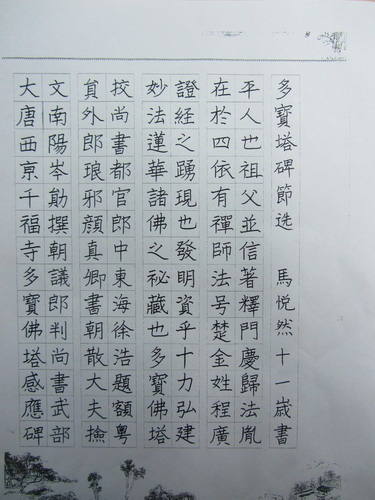 大唐西京千福寺多寶佛塔感應碑
文南陽岑勛撰朝議郎判尚書武部
貟外郎琅邪顏真卿書朝散大夫撿
挍尚書都官郎中東海徐浩題額粵
妙法蓮華諸佛之秘藏也多寶佛塔
證經之踴現也發明資乎十力弘建
在於四依有禪師法号楚金姓程廣
平人也祖父並信著釋門慶歸法胤
多寶塔碑節选 馬悦然十一歲書